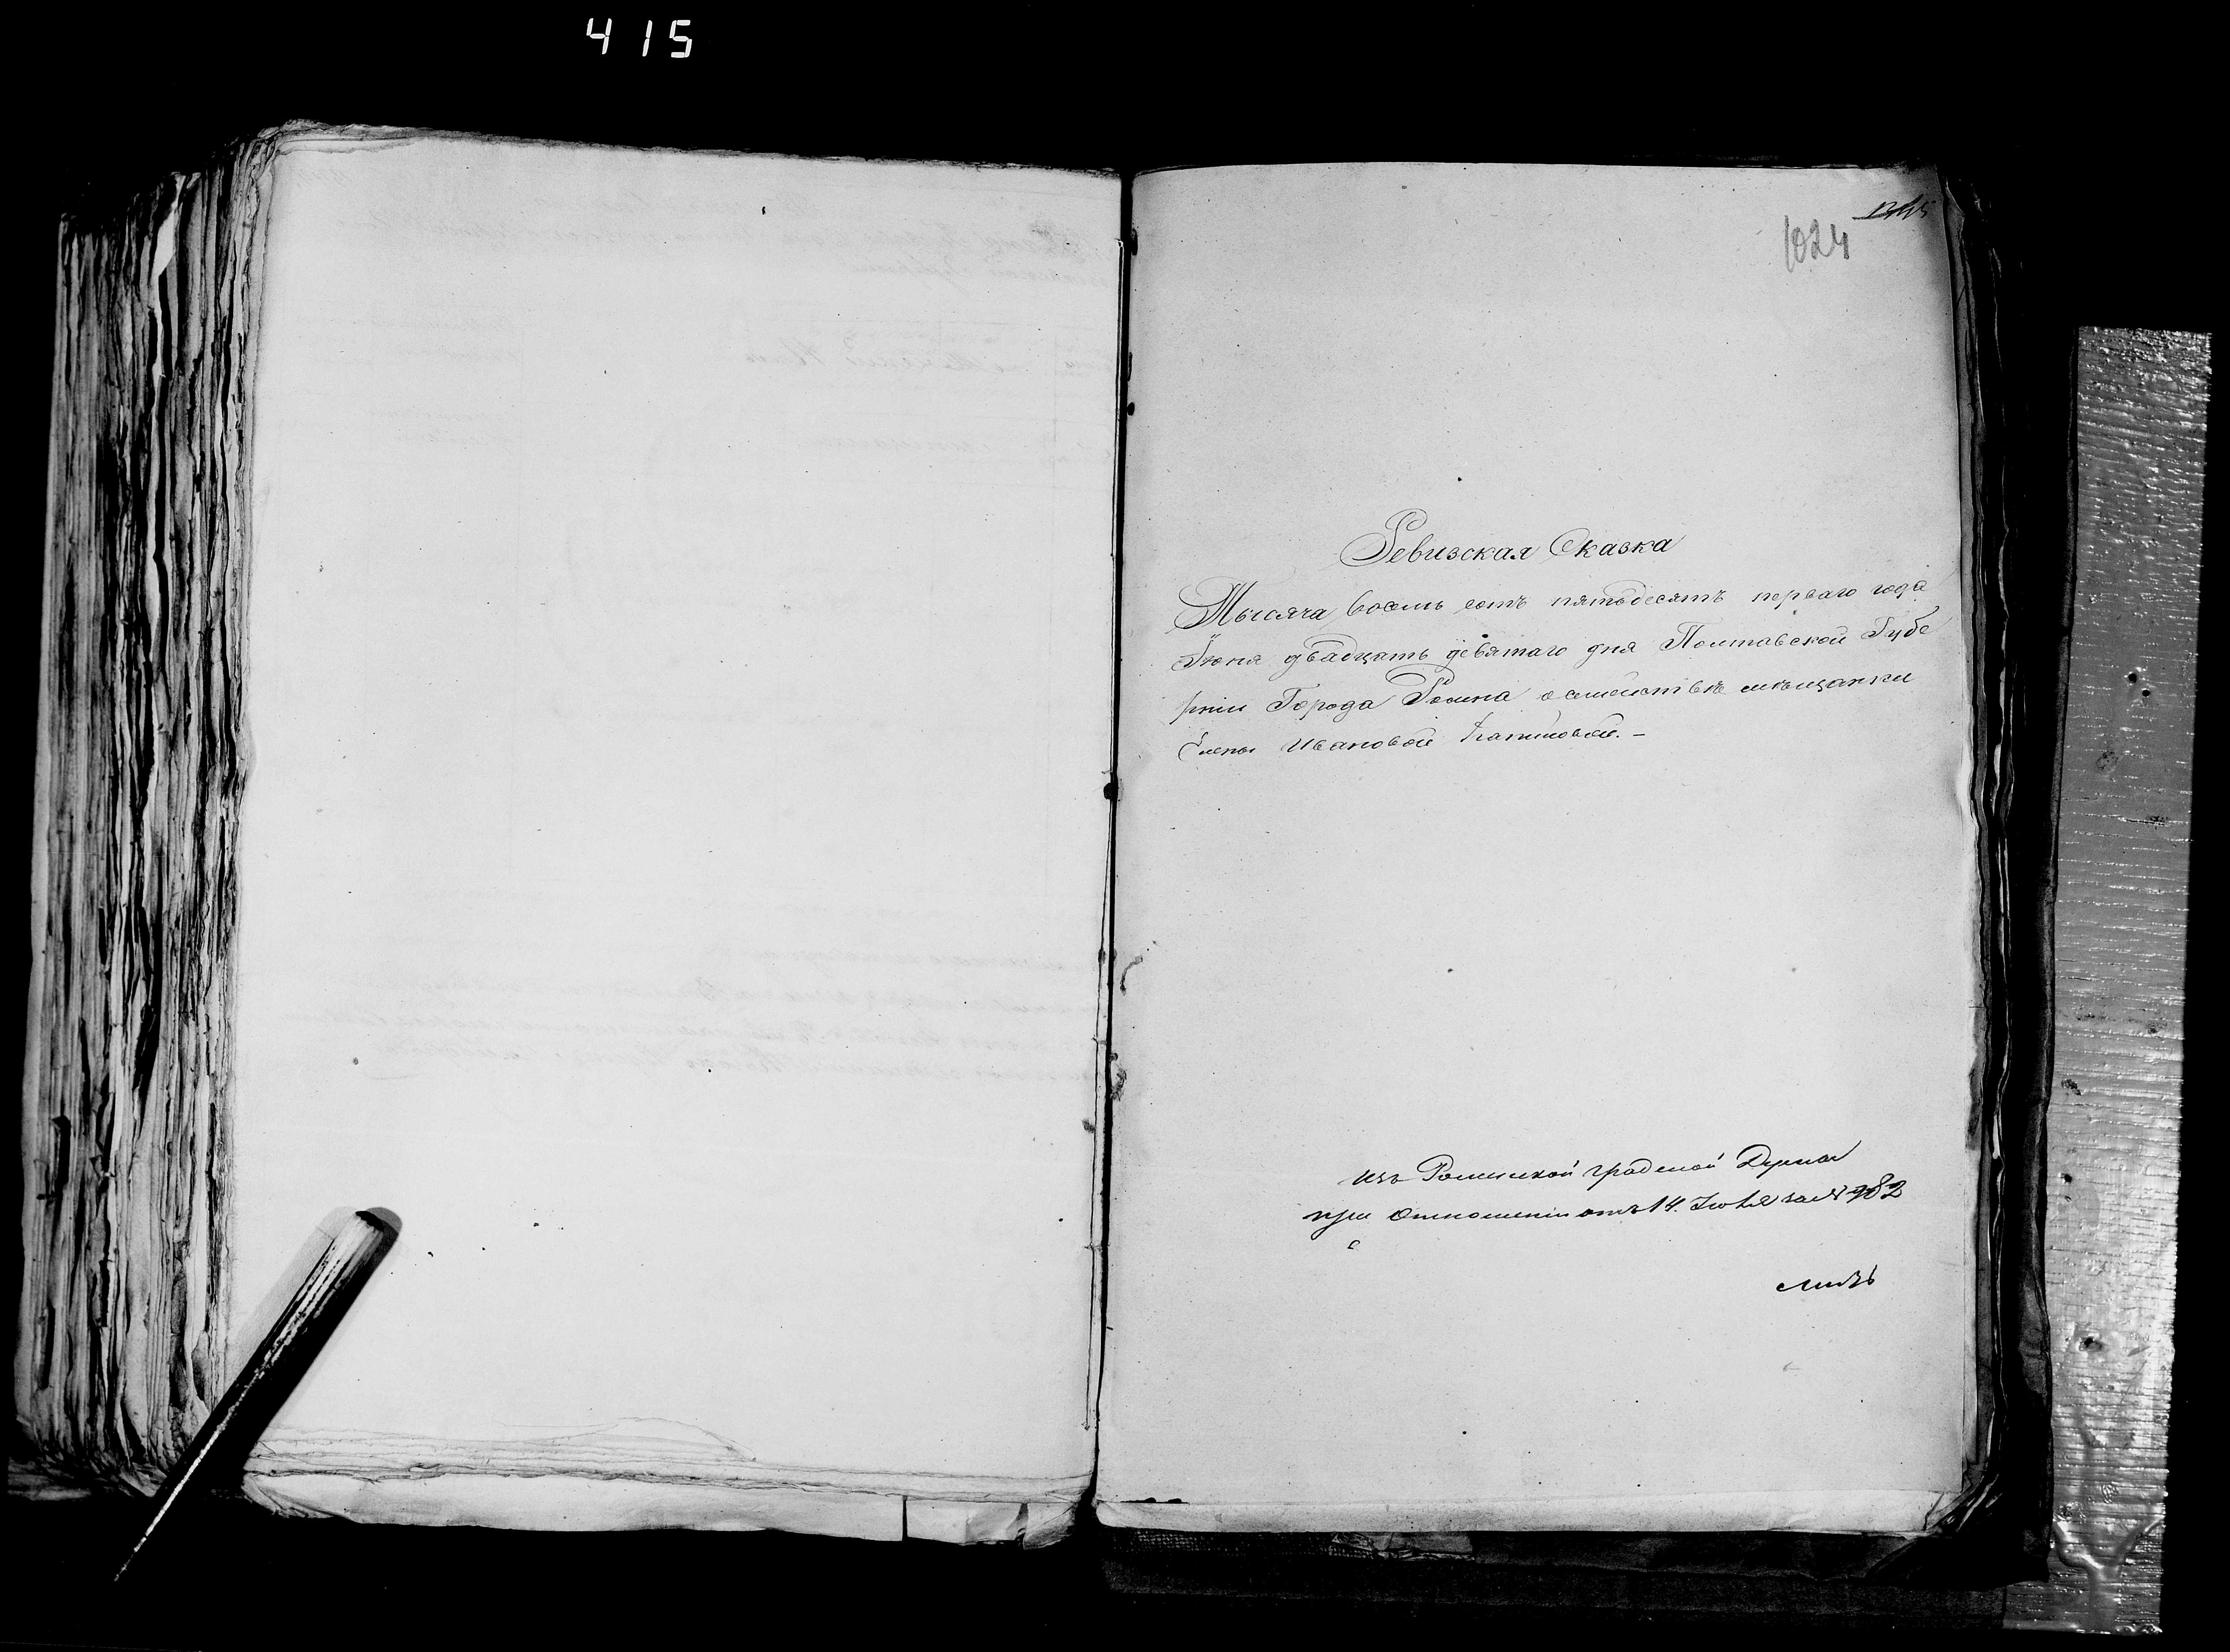 415
1024
Ревизская Сказка
Тысяча восемь сотъ пятьдесятъ перваго года
Іюня двадцать девятаго дня Полтавской Губе
рніи Города Ромна о семействѣ мѣщанки
Елены Ивановой
Изъ Роменской градской Думы
при Отношеніи отъ 14. Іюля за № 982